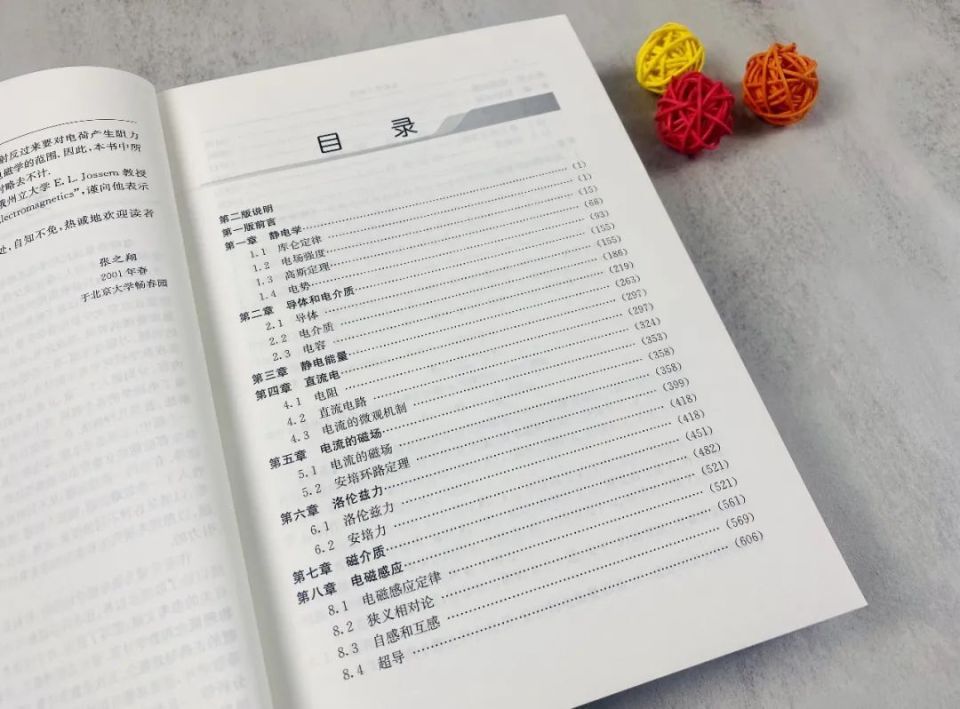 射反过来要对电荷产生阻力
磁学的范围. 因此, 本书中所
略去不计.
州立大学 E. L. Jossem 教授
lectromagnetics”, 谨向他表示
自知不免, 热诚地欢迎读者
张之翔
2001 年春
于北京大学畅春园
目 录
第二版说明
第一版前言
第一章 静电学 (1)
1.1 库仑定律 (1)
1.2 电场强度 (15)
1.3 高斯定理 (68)
1.4 电势 (93)
第二章 导体和电介质 (155)
2.1 导体 (155)
2.2 电介质 (186)
2.3 电容 (219)
第三章 静电能量 (263)
第四章 直流电 (297)
4.1 电阻 (297)
4.2 直流电路 (324)
4.3 电流的微观机制 (353)
第五章 电流的磁场 (358)
5.1 电流的磁场 (358)
5.2 安培环路定理 (399)
第六章 洛伦兹力 (418)
6.1 洛伦兹力 (418)
6.2 安培力 (451)
第七章 磁介质 (482)
第八章 电磁感应 (521)
8.1 电磁感应定律 (521)
8.2 狭义相对论 (561)
8.3 自感和互感 (569)
8.4 超导 (606)